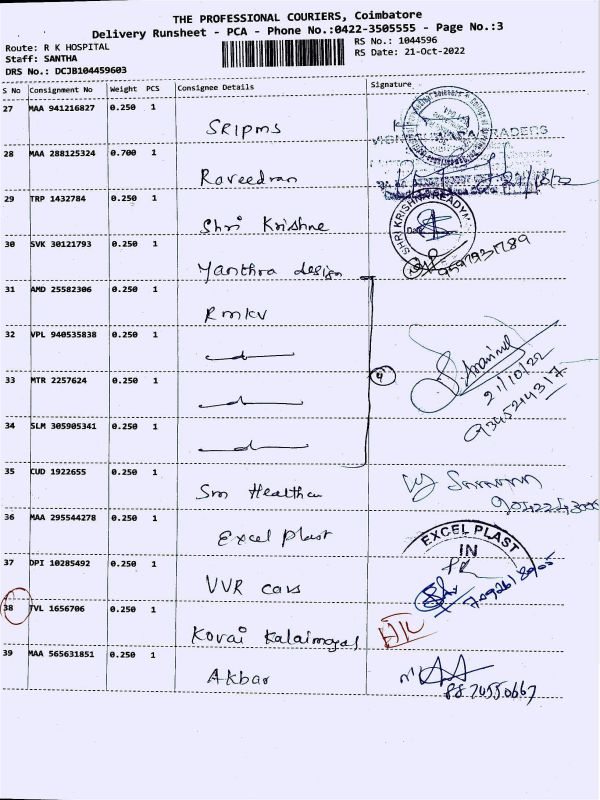 THE PROFESSIONAL COURIERS, Coimbatore
Delivery Runsheet - PCA - Phone No.:0422-3505555 - Page No.:3
Route: R K HOSPITAL
RS No.: 1044596
Staff: SANTHA
RS Date: 21-Oct-2022
DRS No.: DCJB104459603
S No Consignment No Weight PCS Consignee Details Signature
27 MAA 941216827 0.250 1
SRIPMS
28 MAA 288125324 0.700 1
Raveedran
29 TRP 1432784 0.250 1
SHRI KRISHNA READYM
Shri Krishne
30 SVK 30121793 0.250 1
9597931789
Yanthra design
31 AMD 25582306 0.250 1
Rmkv
32 VPL 940535838 0.250 1
33 MTR 2257624 0.250 1
4
21/10/22
9345214317
34 SLM 305905341 0.250 1
35 CUD 1922655 0.250 1
Sm Healthcu
36 MAA 295544278 0.250 1
Excel Plast
EXCEL PLAST
IN
37 DPI 10285492 0.250 1
VVR cars
38 TVL 1656706 0.250 1
Kovai Kalaimagal
39 MAA 565631851 0.250 1
Akbar